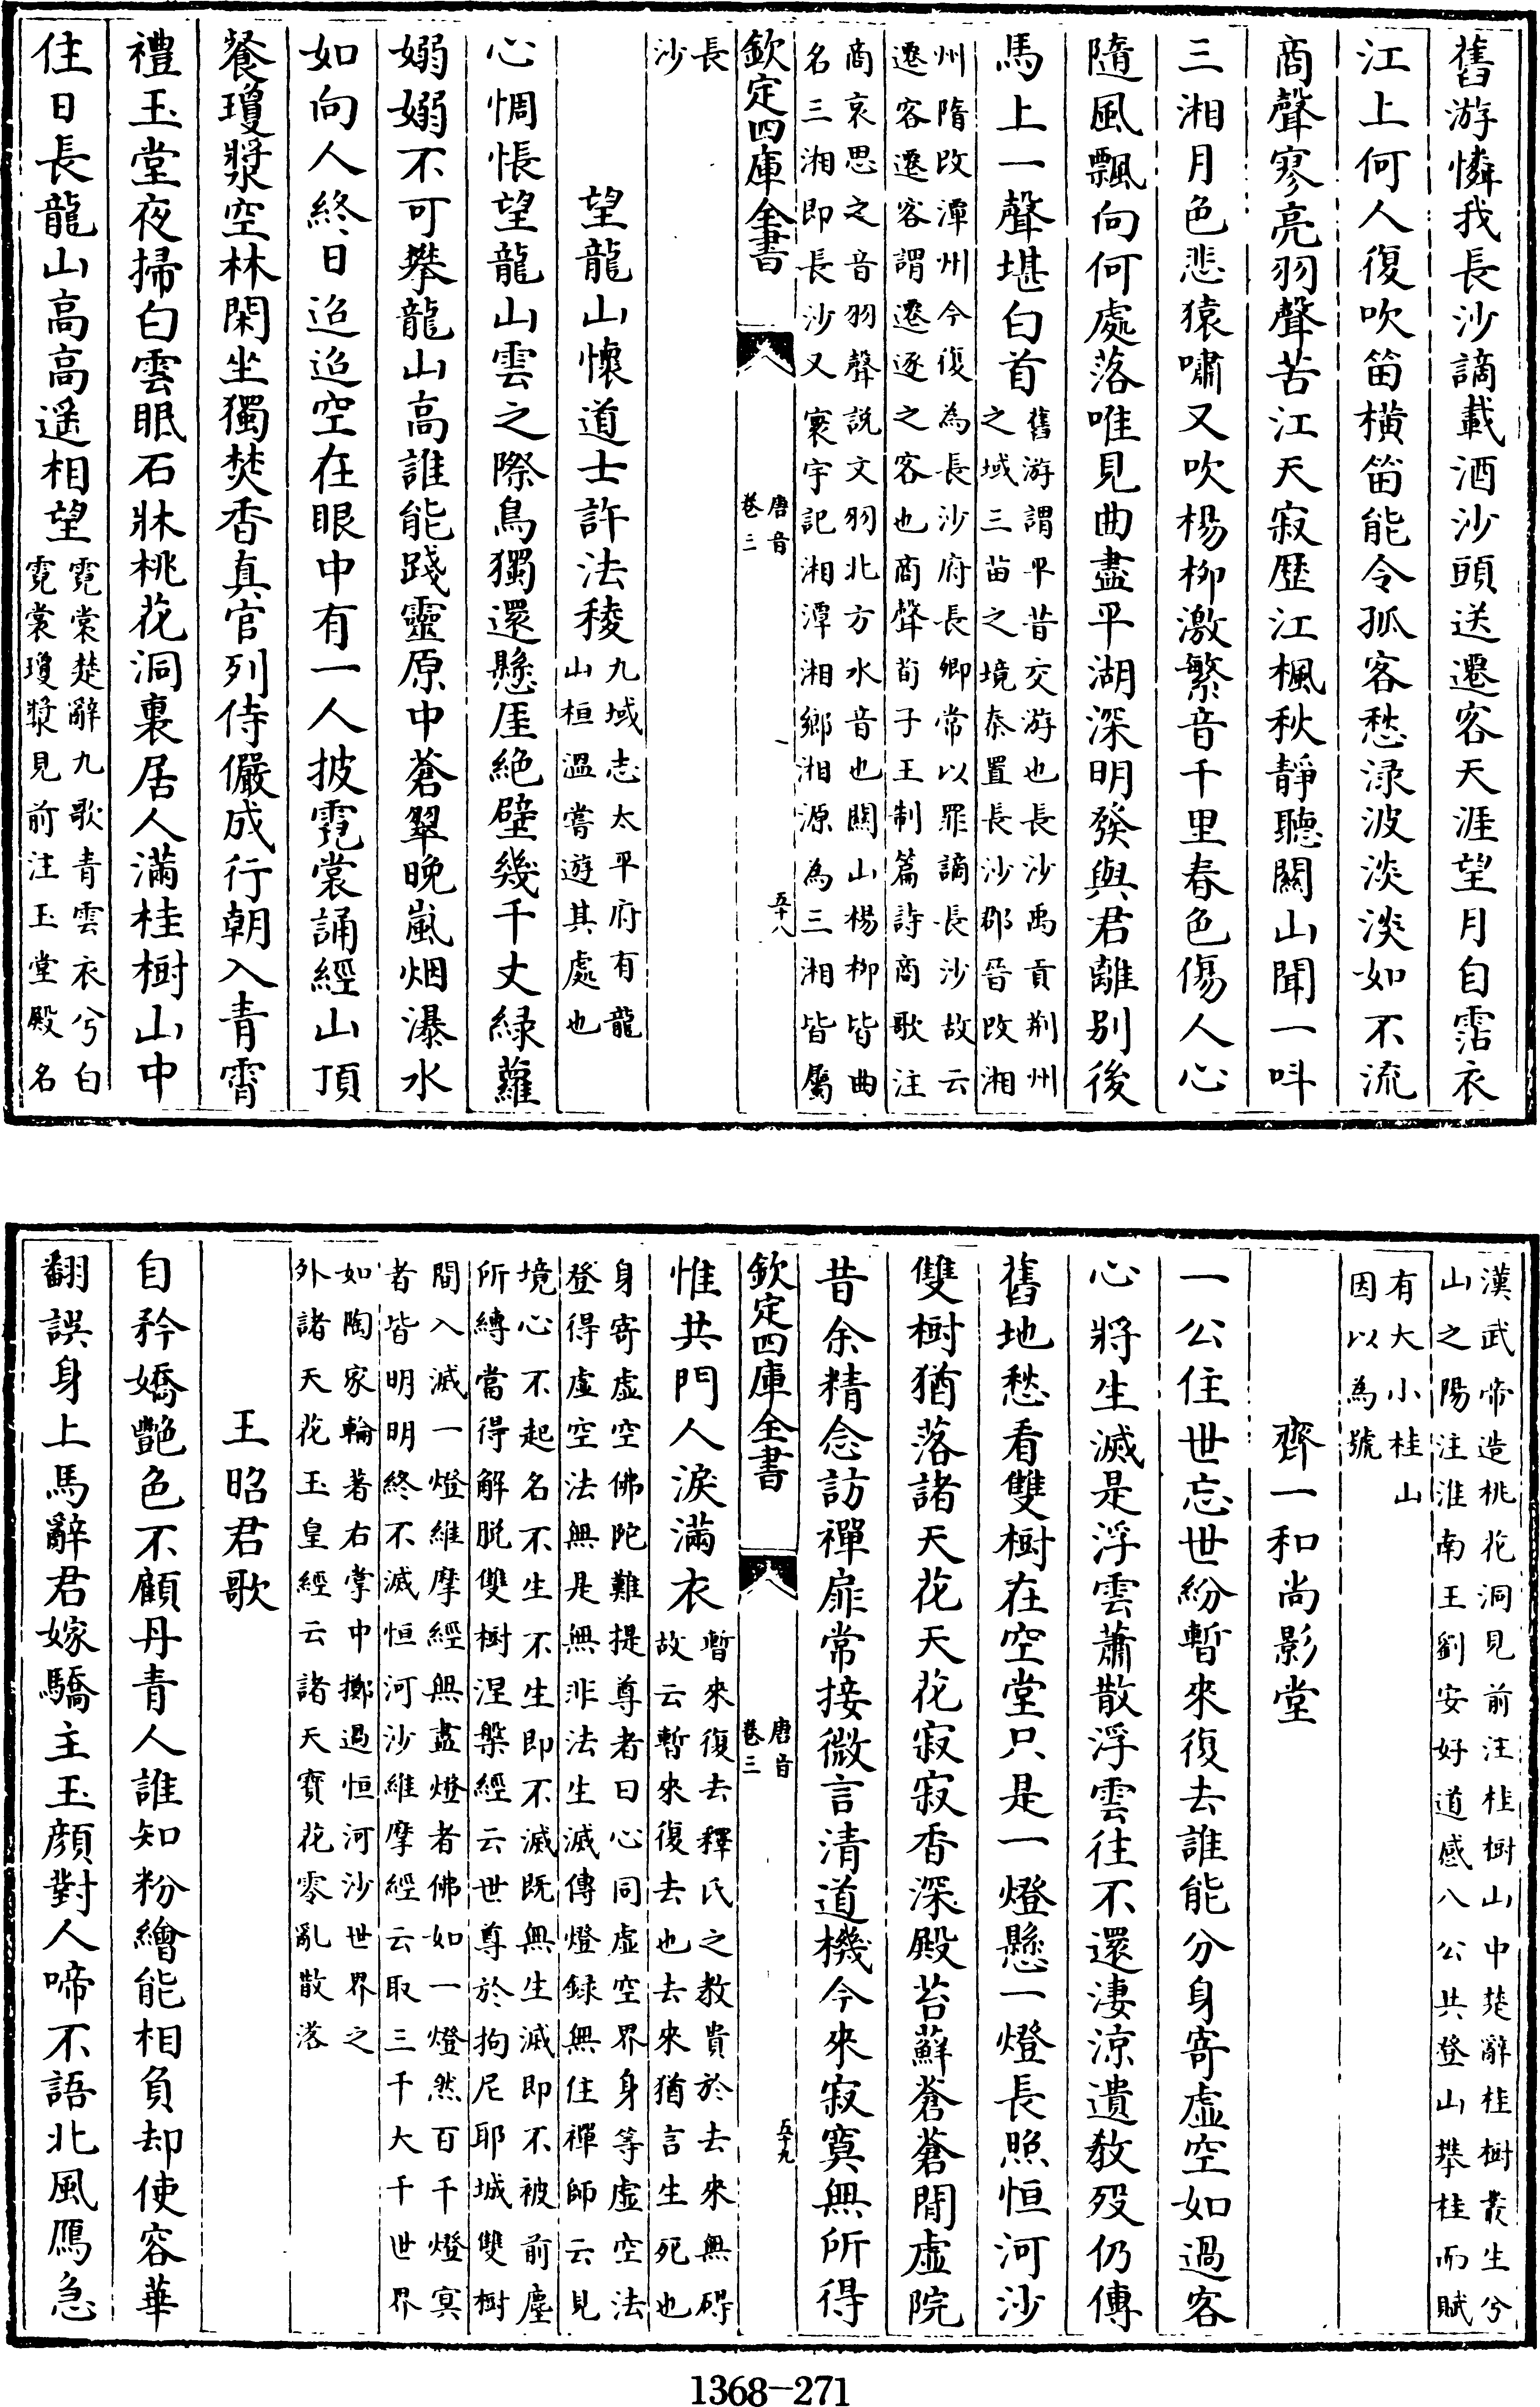 舊游憐我長沙謫載酒沙頭送遷客天涯望月自霑衣
江上何人復吹笛橫笛能令孤客愁淥波淡淡如不流
商聲寥亮羽聲苦江天寂歷江楓秋靜聽關山聞一呌
三湘月色悲猿嘯又吹楊柳激繁音千里春色傷人心
隨風飄向何處落唯見曲盡平湖深明發與君離別後
馬上一聲堪白首舊游謂平昔交游也長沙禹貢荆州
之域三苗之境秦置長沙郡晉改湘
州隋改潭州今復為長沙府長卿常以罪謫長沙故云
遷客遷客謂遷逐之客也商聲荀子王制篇詩商歌注
商哀思之音羽聲説文羽北方水音也關山楊柳皆曲
名三湘即長沙又寰宇記湘潭湘鄉湘源為三湘皆屬
欽定四庫全書
唐音
卷三
五十八
長
沙
望龍山懷道士許法稜九域志太平府有龍
山桓溫嘗遊其處也
心惆悵望龍山雲之際鳥獨還懸厓絶壁幾千丈緑蘿
嫋嫋不可攀龍山高誰能踐靈原中蒼翠晚嵐烟瀑水
如向人終日迢迢空在眼中有一人披霓裳誦經山頂
餐瓊漿空林閑坐獨焚香真官列侍儼成行朝入青霄
禮玉堂夜掃白雲眠石牀桃花洞裏居人滿桂樹山中
住日長龍山高高遥相望霓裳楚辭九歌青雲衣兮白
霓裳瓊漿見前注玉堂殿名
漢武帝造桃花洞見前注桂樹山中楚辭桂樹叢生兮
山之陽注淮南王劉安好道感八公共登山攀桂而賦
有大小桂山
因以為號
齊一和尚影堂
一公住世忘世紛暫來復去誰能分身寄虛空如過客
心將生滅是浮雲蕭散浮雲往不還淒涼遺教歿仍傳
舊地愁看雙樹在空堂只是一燈懸一燈長照恒河沙
雙樹猶落諸天花天花寂寂香深殿苔蘚蒼蒼閒虛院
昔余精念訪禪扉常接微言清道機今來寂寞無所得
欽定四庫全書
唐音
卷三
五十九
惟共門人淚滿衣暫來復去釋氏之教貴於去來無碍
故云暫來復去也去來猶言生死也
身寄虛空佛陀難提尊者曰心同虛空界身等虛空法
登得虛空法無是無非法生滅傳燈録無住禪師云見
境心不起名不生不生即不滅既無生滅即不被前塵
所縛當得解脱雙樹涅槃經云世尊於拘尼耶城雙樹
間入滅一燈維摩經無盡燈者佛如一燈然百千燈冥
者皆明明終不滅恒河沙維摩經云取三千大千世界
如陶家輪著右掌中擲過恒河沙世界之
外諸天花玉皇經云諸天寶花零亂散落
王昭君歌
自矜嬌艷色不顧丹青人誰知粉繪能相負却使容華
翻誤身上馬辭君嫁驕主玉顔對人啼不語北風鴈急
1368-271